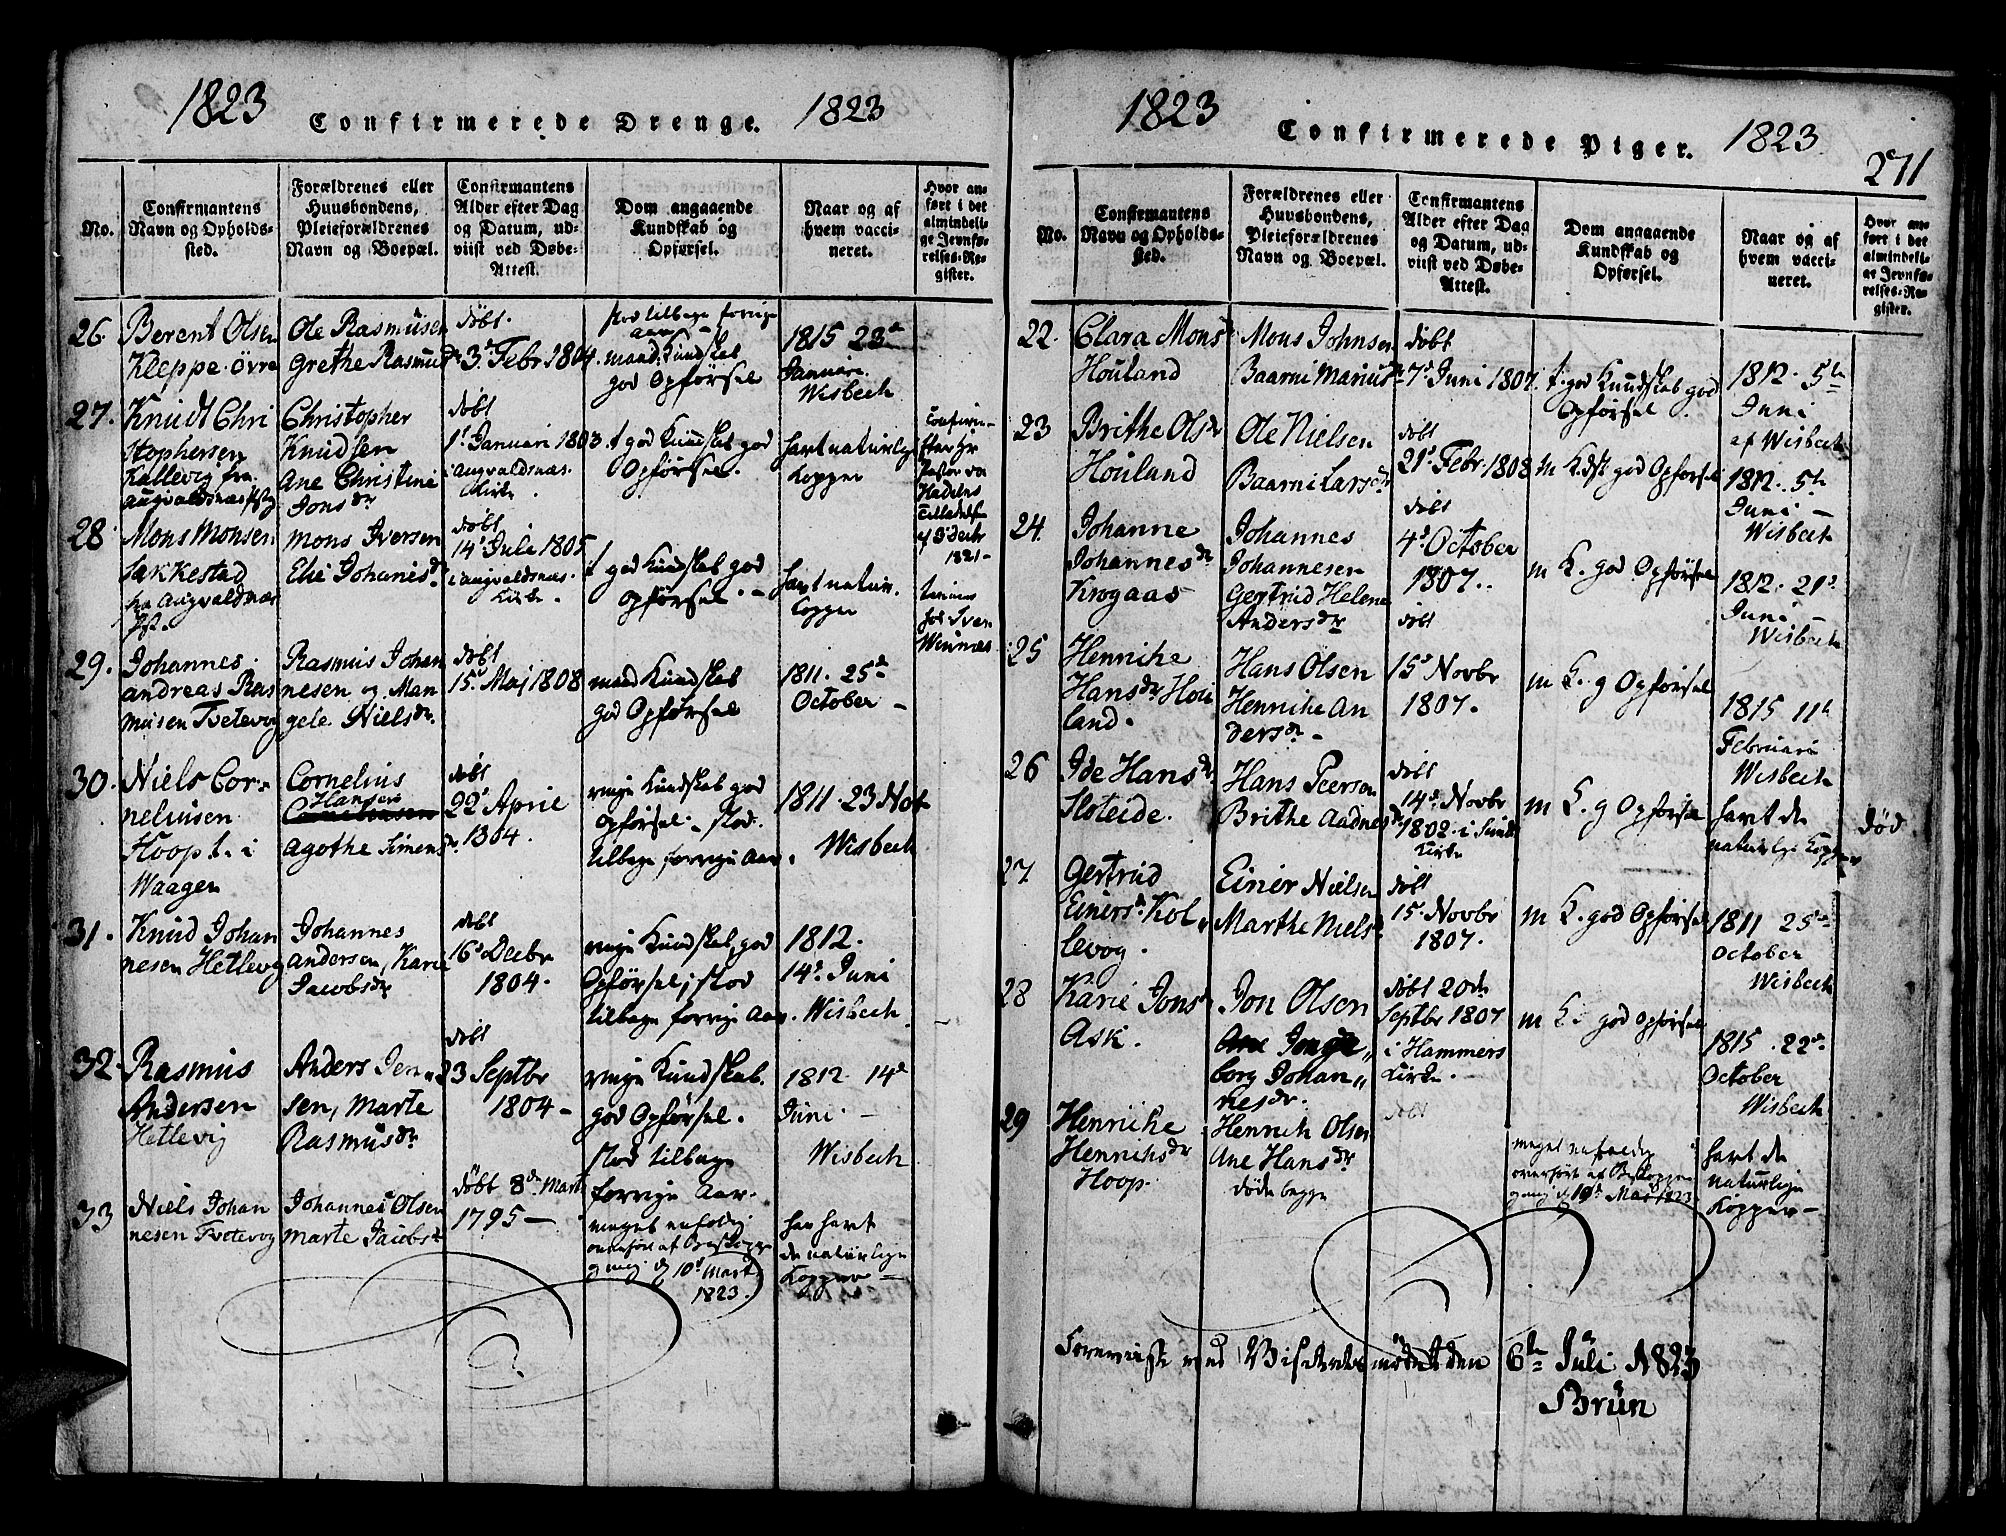 1823 Confirmerede Drenge. 1823
No.
Confirmantens
Navn og Opholds-
sted.
Forældrenes eller
Huusbondens,
Pleieforældrenes
Navn og Boepæl.
Confirmantens
Alder efter Dag
og Datum, ud-
viist ved Døbe-
Attest.
Dom angaaende
Kundskab og
Opførsel.
Naar og af
hvem vacci-
neret.
Hvor an-
ført i det
almindeli-
ge Jevnfø-
relses-Re-
gister.
26.
Berent Olsen
Kleppe. övre
Ole Rasmusen
Grethe Rasmusdr
döbt.
3d Febr 1804.
stod tilbage forrige
aar
maad. Kundskab
god Opførsel
1815 23de
Januari.
Wisbech
27.
Knudt Chri
stophersen
Kallevig fra
Augvaldsnæs Pstg
Christopher
Knudsen
Ane Christine
Jonsdr
döbt
1d Januari 1803
i Augvaldsnæs.
Kirke.
t god Kundskab god
Opførsel.
havt naturlige
Kopper
28.
Mons Monsen
Sakkestad
fra Augvaldnæs
Pst.
Mons Iversen
Eli Johanisdr
döbt
14d Juli 1805
i Augvaldsnæs.
Kirke.
t god Kundskab god
Opførsel. -
havt natur.
Kopper
tiener
hos Iver
29.
Johannes
Andreas Ras
musen Tvetevog
Rasmus Johan
nesen og Man
gele Nielsdr.
döbt
15d Maj 1808
maad Kundskab
god Opførsel
1811. 25de
October -
30.
Niels Cor-
neliusen
Hoop t. i
Waagen
Cornelius
Hansen
Corneliusen
Agothe Simensdr.
döbt
22d April
1804.
ringe Kundskab god
Opførsel. stod.
tilbage forrige Aar.
1811. 23 Nov
Wisbech
31.
Knud Johan
nesen Hetlevog
Johannes
Andersen, Karie
Jacobsdr
döbt
16d Decbr
1804.
ringe Kundskab, god
Opførsel; stod
tilbage forrige Aar.
1812.
14d Juni
Wisbech
32.
Rasmus
Andersen
Hetlevig
Anders Jen
sen, Marte
Rasmusdr
döbt
23 Septbr
1804 -
ringe Kundskab.
god Opførsel.
stod tilbage
forrige Aar.
1812. 14d
Juni. -
Wisbech
33
Niels Johan
nesen Tvetevog
Johannes Olsen
Marte Jacobsdr
döbt 8de Mart
1795 -
meget enfoldig
overhørt af Biskoppe
og mig d 10d Mart
1823.
har havt
de naturlige
Kopper -
1823 Confirmerede Piger. 1823.
271
No.
Confirmantens
Navn og Opholds-
sted.
Forældrenes eller
Huusbondens,
Pleieforældrenes
Navn og Boepæl.
Confirmantens
Alder efter Dag
og Datum, ud-
viist ved Døbe-
Attest.
Dom angaaende
Kundskab og
Opførsel.
Naar og af
hvem vacci-
neret.
Hvor an-
ført i det
almindeli-
ge Jevnfø-
relses-Re-
gister.
22.
Clara Monsdr
Houland
Mons Johnsen
Baarni Mariusdr
döbt
7d Juni 1807.
t. god Kundskab god
Opførsel.
1812. 5te
Juni
af Wisbech
23
Brithe Olsdr
Houland
Ole Nielsen
Baarni Larsdr
döbt
21d Febr. 1808
m Kdsk god Opførsel
1812. 5te
Juni -
Wisbech
24.
Johanne
Johannesdr
Krogaas
Johannes
Johannesen
Gertrud Helene
Andersdr
döbt
4d October
1807.
m K. god Opførsel
1812. 21d
Juni -
Wisbech
25
Henrike
Hansdr Hou
land.
Hans Olsen
Henrike An
dersdr -
döbt
15d Novbr
1807.
m K. g Opførsel
1815 11te
Februari
Wisbech
26
Ide Hansdr
Sloteide.
Hans Peersen
Brithe Aadnesdr
döbt
14d Novbr
1802. i Sund
Kirke
m K. g Opførsel
havt de
naturlige Kopper
död
27.
Gertrud
Einersdr Kol
levog.
Einer Nielsen
Marthe Nielsdr
döbt
15. Novbr
1807.
m K. god Opførsel
1811 25de
October
Wisbech
28
Karie Jonsdr
Ask.
Jon Olsen
Inge
borg Johan
nesdr.
döbt 20de
Septbr 1807
i Hammers
Kirke. -
m K. god Opførsel
1815. 22de
October
Wisbech
29
Henrike
Henrihsdr
Hoop.
Henrich Olsen
Ane Hansdr
döde begge
döbt
meget enfoldig
overhørt af Biskoppen
og mig d 10de Mart 1823
havt de
naturlige
Kopper -
Foreviist ved Visitats mödet den 6te Juli 1823
Brün